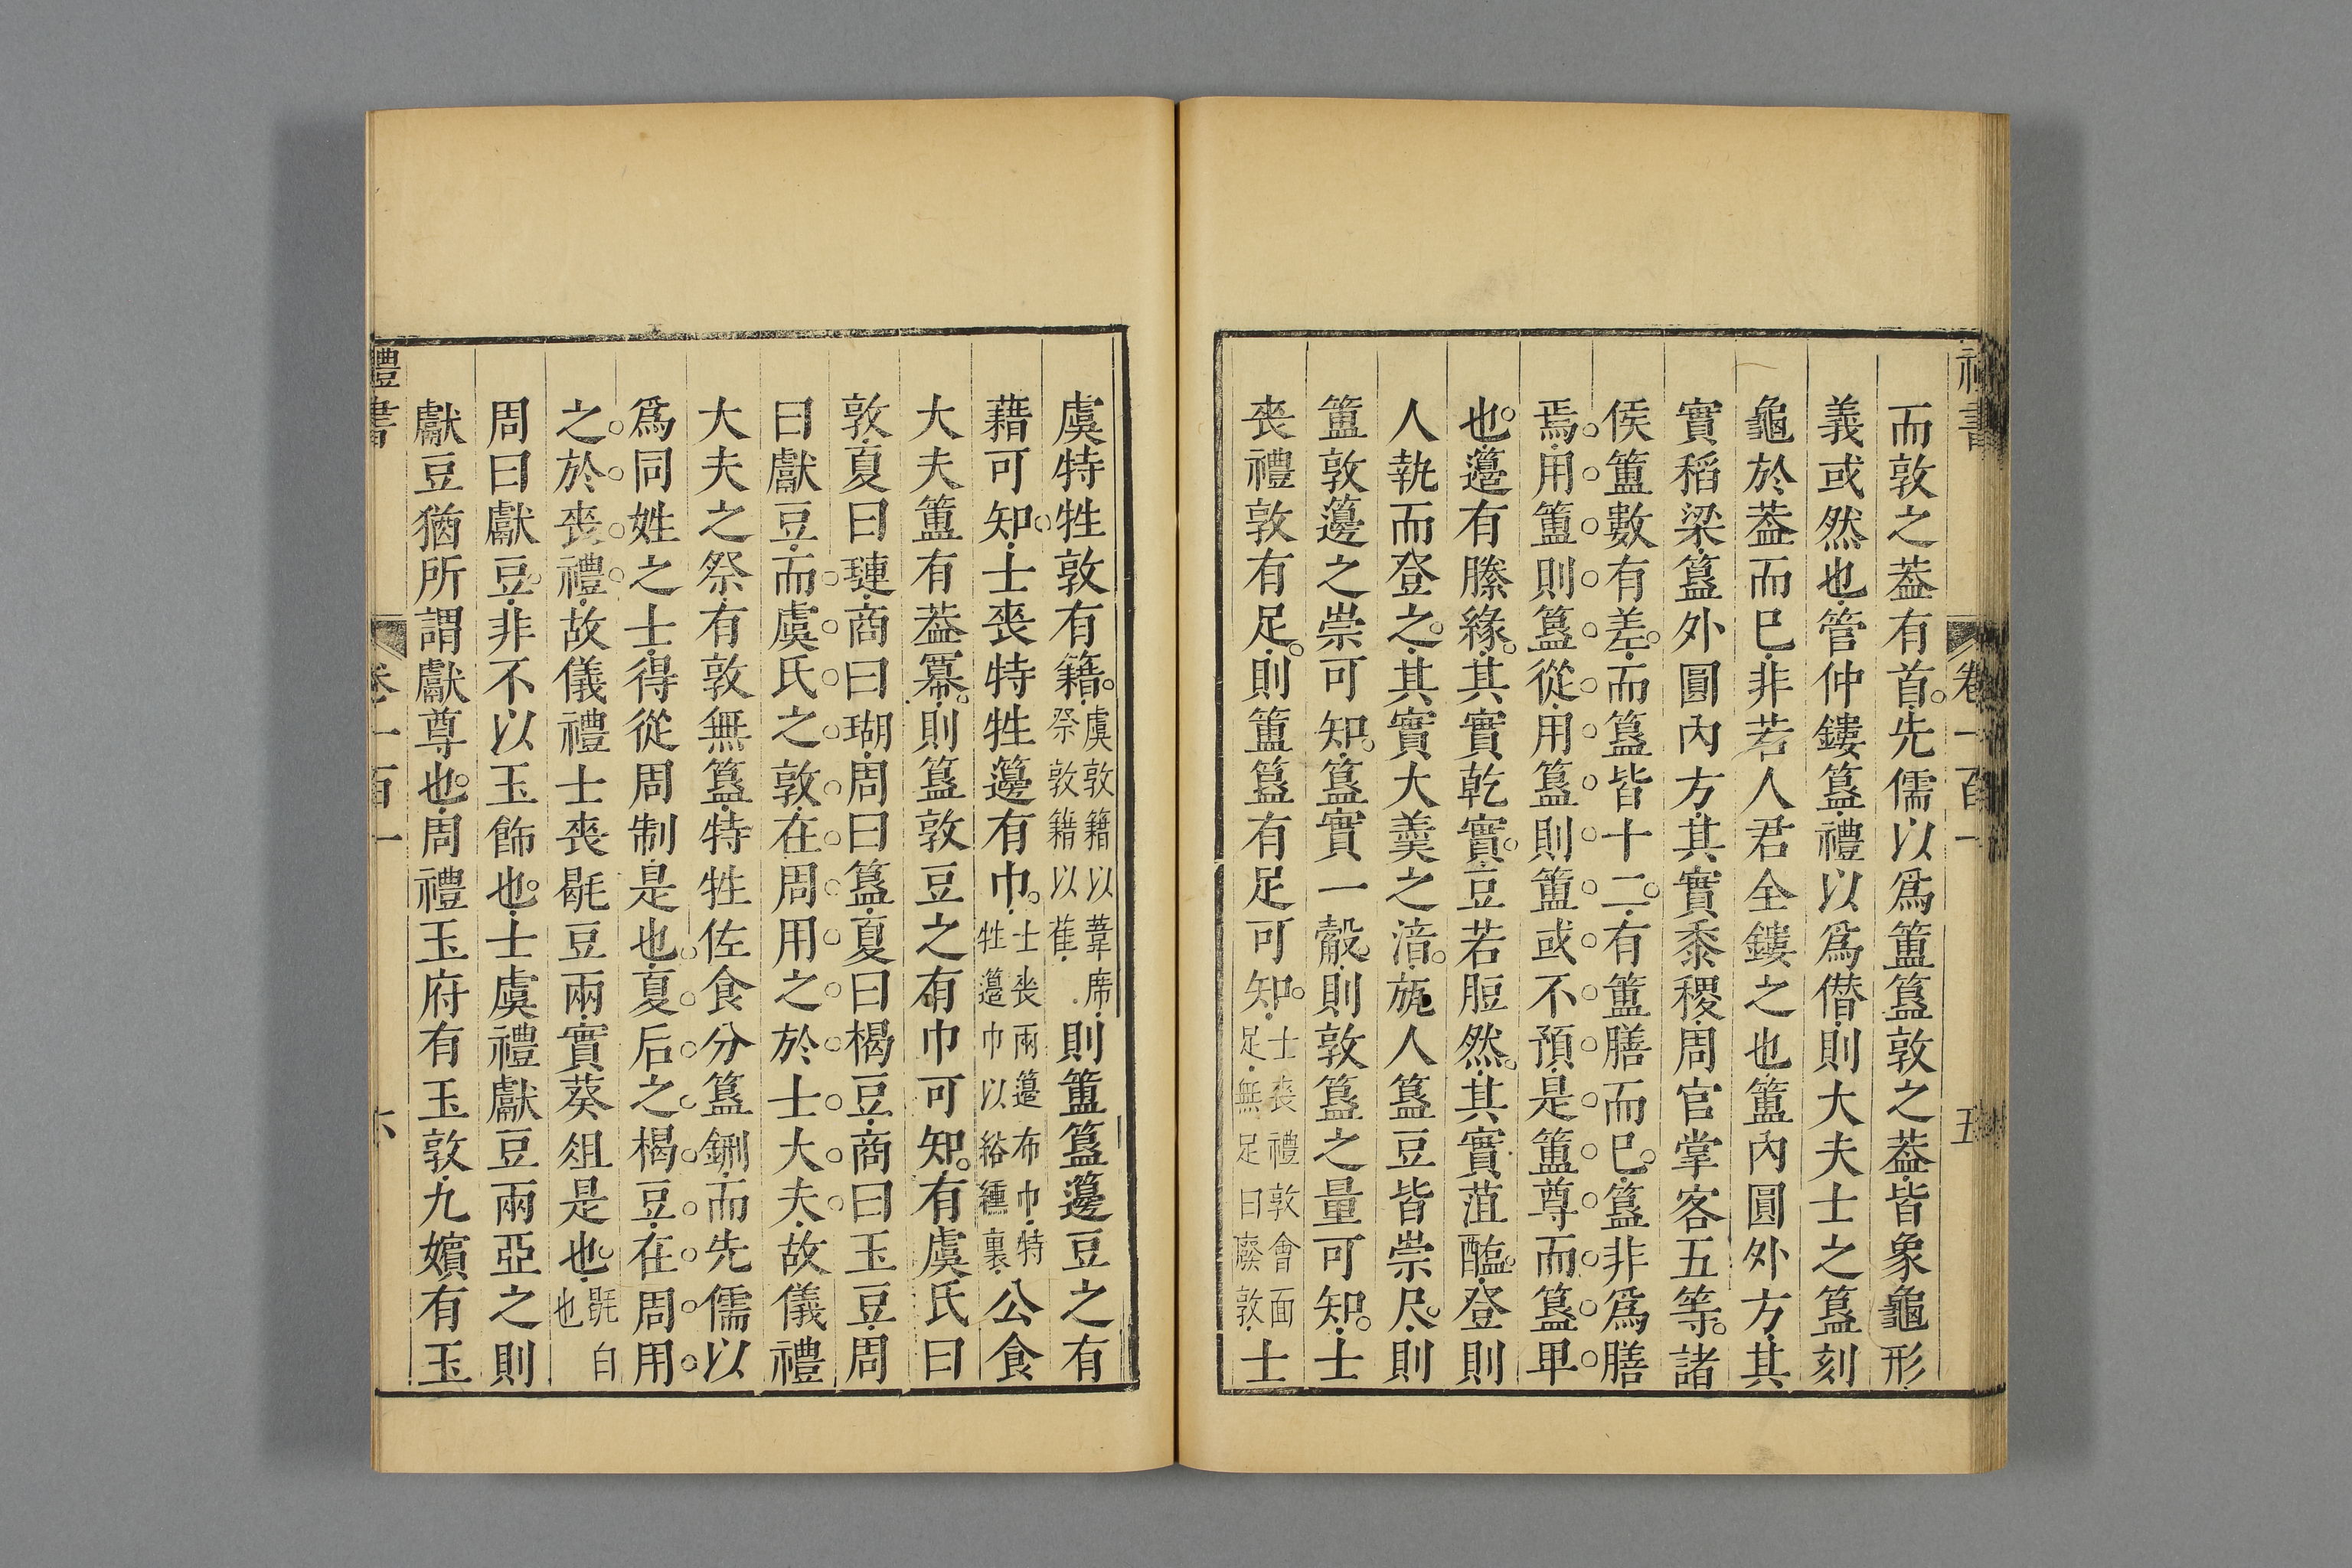 禮書 卷一百一 五
而敦之葢有首先儒以爲簠簋敦之葢皆象龜形
義或然也管仲鏤簋禮以爲僭則大夫士之簋刻
龜於葢而巳非若人君全鏤之也簠內圓外方其
實稻梁簋外圓內方其實黍稷周官掌客五等諸
侯簠數有差而簋皆十二有簠膳而巳簋非爲膳
焉用簠則簋從用簋則簠或不預是簠尊而簋卑
也籩有縢緣其實乾實豆若脰然其實菹醢登則
人執而登之其實大羹之湆旊人簋豆皆崇尺則
簠敦籩之崇可知簋實一觳則敦簋之量可知士
喪禮敦有足則簠簋有足可知士喪禮敦會面足無足曰廢敦士
虞特牲敦有籍虞敦籍以葦席祭敦籍以萑則簠簋籩豆之有
藉可知士喪特牲籩有巾士喪兩籩布巾特牲籩巾以綌纁裏公食
大夫簠有葢冪則簋敦豆之有巾可知有虞氏曰
敦夏曰璉商曰瑚周曰簋夏曰楬豆商曰玉豆周
曰獻豆而虞氏之敦在周用之於士大夫故儀禮
大夫之祭有敦無簋特牲佐食分簋鉶而先儒以
爲同姓之士得從周制是也夏后之楬豆在周用
之於喪禮故儀禮士喪毼豆兩實葵俎是也毼白也
周曰獻豆非不以玉飾也士虞禮獻豆兩亞之則
獻豆猶所謂獻尊也周禮玉府有玉敦九嬪有玉
禮書 卷一百一 六